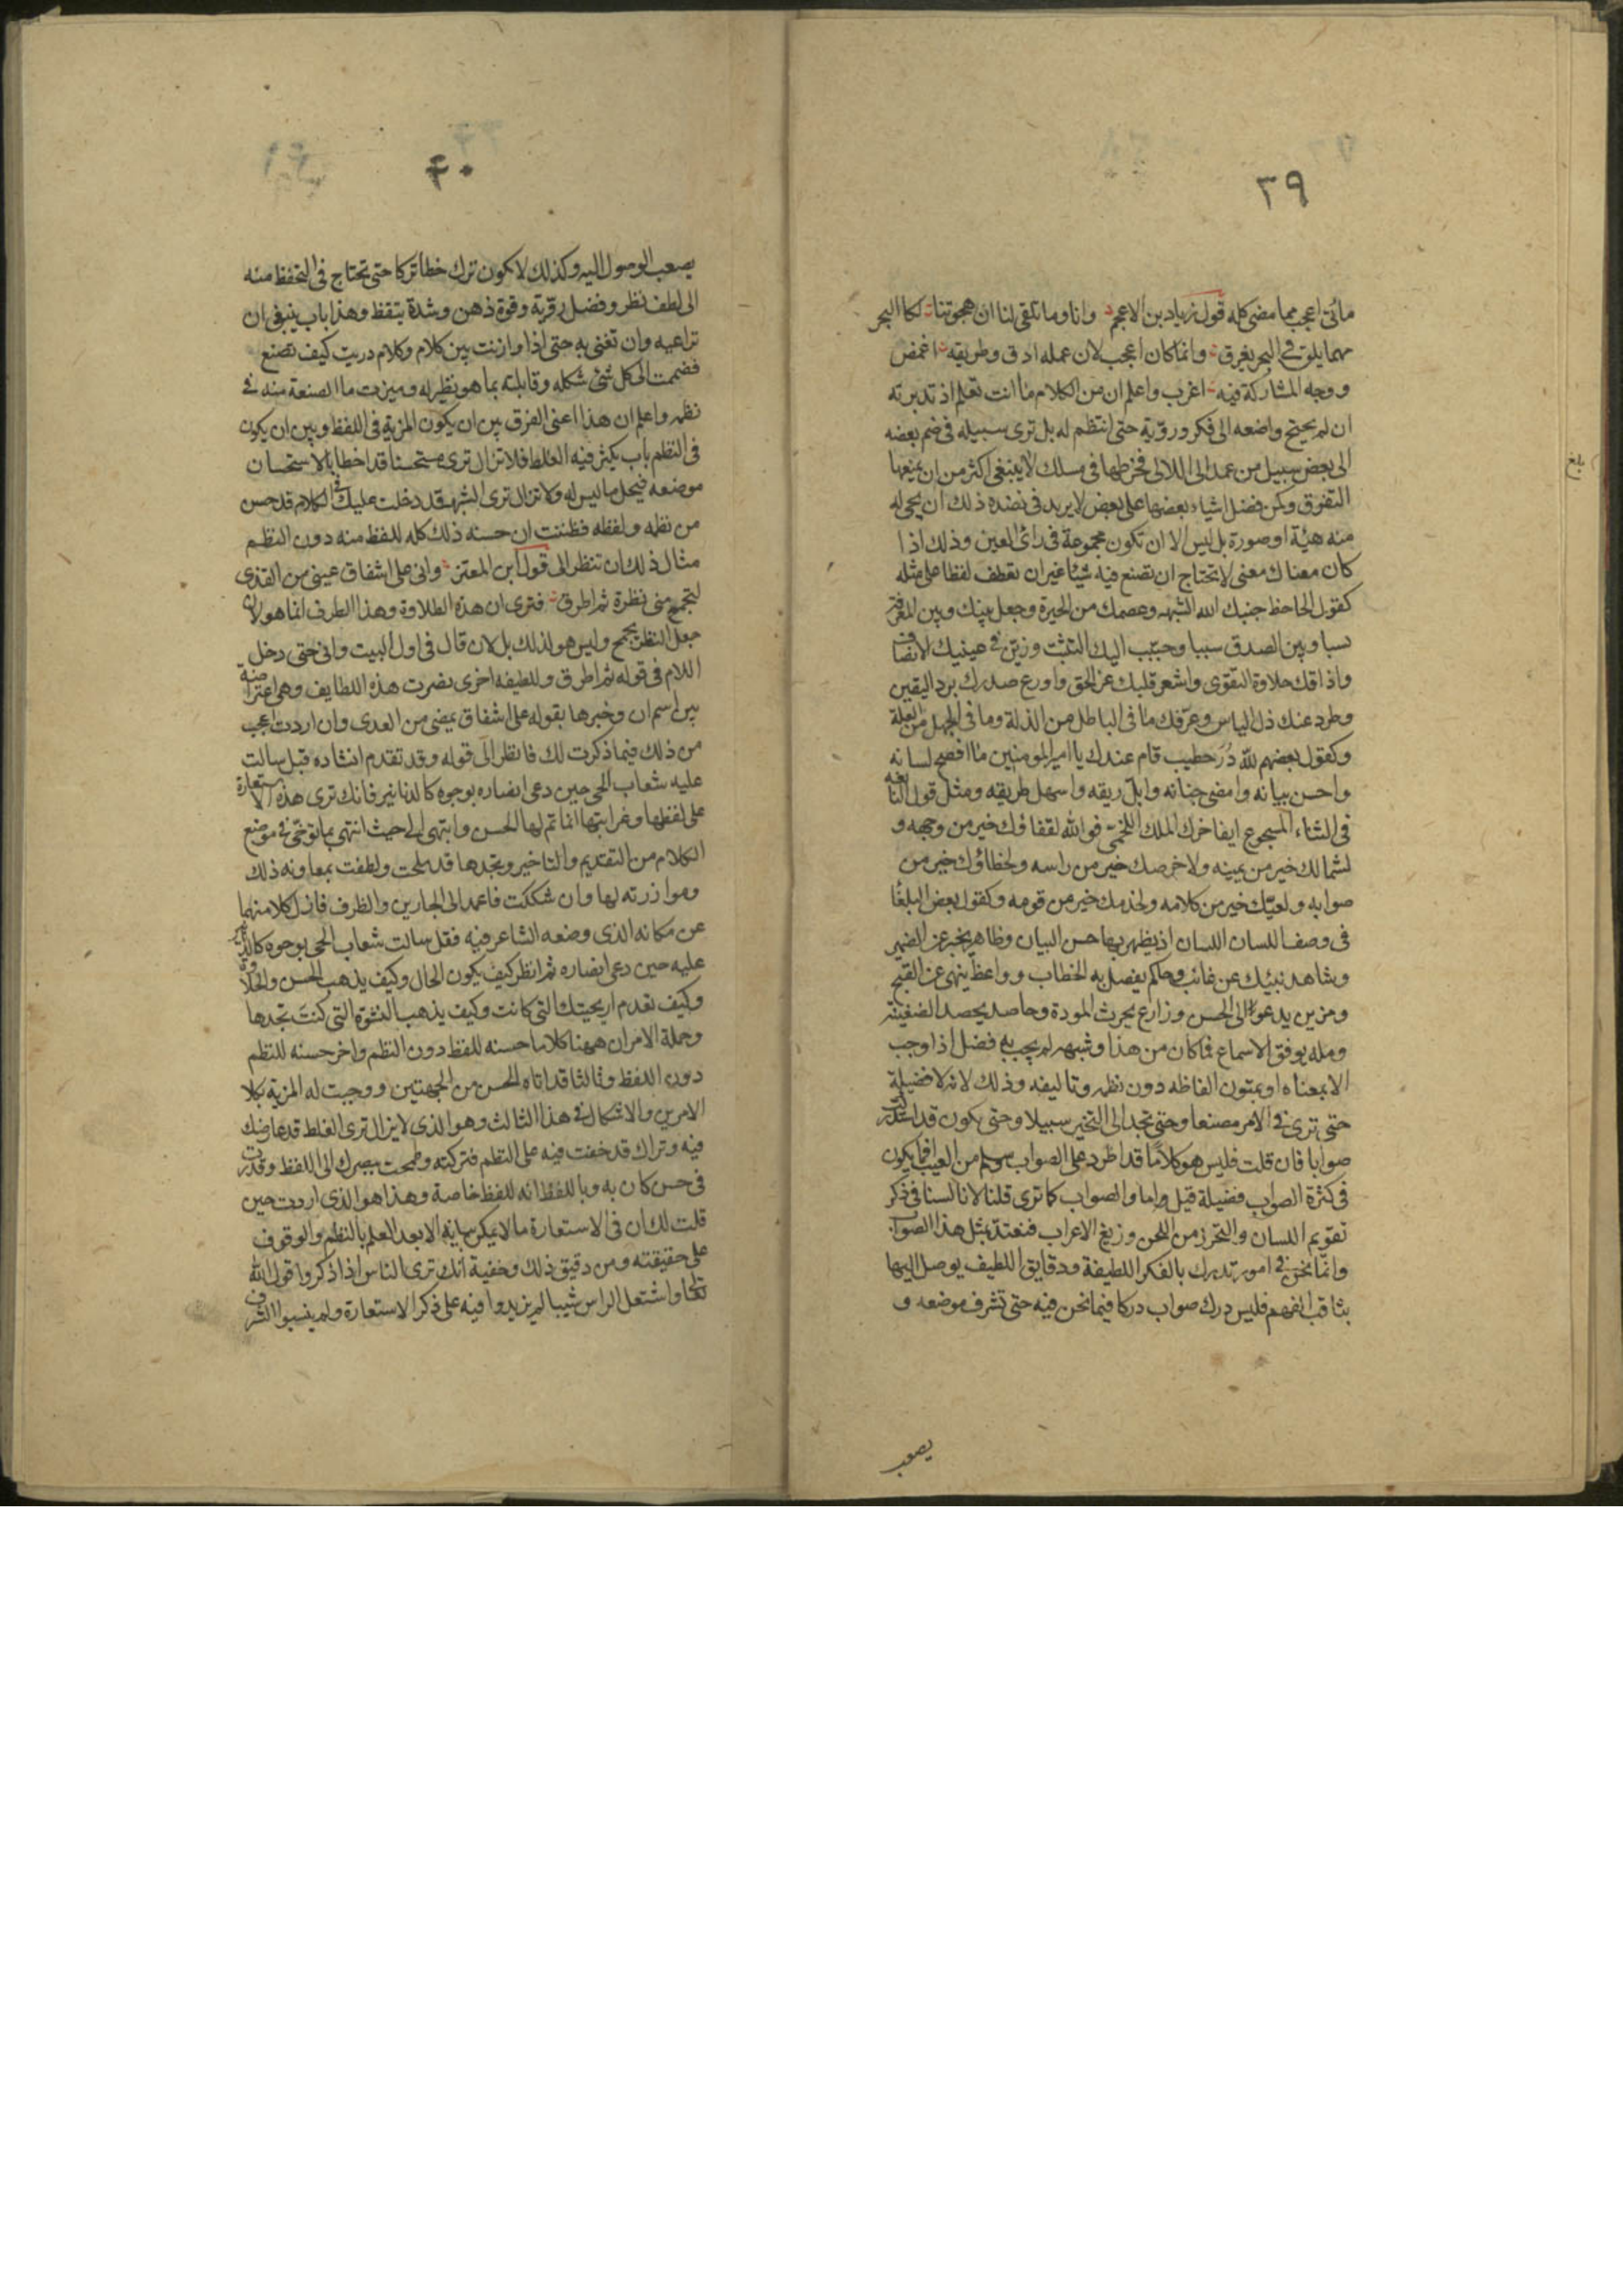 ٣٩
مأتى اعجب مما مضى كله قول زياد بن الاعجم وانا وما تلقى لنا ان هجوتنا لكا البحر
مهما يلق فى البحر يغرق وانما كان اعجب لان عمله ادق وطريقه اغمض
ووجه المشاركة فيه اغرب واعلم ان من الكلام ما انت تعلم اذ تدبرته
ان لم يحتج واضعه الى فكر وروّية حتى انتظم له بل ترى سبيله فى ضم بعضه
الى بعض سبيل من عمد الى اللالى فخرطها فى سلك لا يبتغى اكثر من ان يمنعها
التفوق وكمن فضل اشياء بعضها على بعض لا يريد فى نضده ذلك ان يحى له
منه هيئة او صورة بل ليس الا ان تكون مجموعة فى رائ العين وذلك اذا
كان معناك معنى لا تحتاج ان تصنع فيه شيئا غير ان تعطف لفظا على مثله
كقول الجاحظ جنبك الله الشبهه وعصمك من الحيرة وجعل بينك وبين المعرفة
نسبا وبين الصدق سببا وحبّب اليك التثبت وزيّن فى عينيك الانصاف
واذاقك حلاوة التقوى واشعر قلبك عز الحق واورع صدرك برد اليقين
وطرد عنك ذل الياس وعرّفك ما فى الباطل من الذلة وما فى الجهل من القلة
وكقول بعضهم لله دُرّ خطيب قام عندك يا امير المومنين ما افصح لسانه
واحسن بيانه وامضى جنانه وابلّ ريقه واسهل طريقه ومثل قول النابغه
فى الثناء المسجوع ايفاخرك الملك اللخمى فوالله لقفاؤك خير من وجهه و
لشمالك خير من يمينه ولاخمصك خير من راسه ولخطاؤك خير من
صوابه ولعيّك خير من كلامه ولخدمك خير من قومه وكقول بعض البلغا
فى وصف اللسان اللسان اذ يظهر بها حسن البيان وظاهر يخبر عن الضمير
وشاهد ينبئك عن غائب وحاكم يفصل به الخطاب وواعظ ينهى عن القبيح
ومزين يدعوا الى الحسن وزارع يحرث المودة وحاصد يحصد الضغينة
ومله يوفق الاسماع فما كان من هذا وشبهه لم يجب به فضل اذا وجب
الا بمعناه او بمتون الفاظه دون نظمه وتاليفه وذلك لانه لا فضيلة
حتى ترى فى الامر مصنعا وحتى تجد الى التخير سبيلا وحتى يكون قد استدركت
صوابا فان قلت فليس هو كلامًا قد اطرد على الصواب وسلم من العيب افما يكون
فى كثرة الصواب فضيلة قيل واما والصواب كما ترى قلنا لانا لسنا فى ذكر
تقويم اللسان والتحرز من اللحن وزيغ الاعراب فنعتد بمثل هذا الصواب
وانّما نحن فى امور تدرك بالفكر اللطيفة ودقايق اللطيف يوصل اليها
بثاقب الفهم فليس درك صواب دركا فيما نحن فيه حتى تشرف موضعه و
يصعب
بلغ
٤٠
يصعب الوصول اليه وكذلك لا يكون ترك خطا تركا حتى تحتاج فى التحفظ منه
الى لطف نظر وفضل روّية وقوة ذهن وشدة تيقظ وهذا باب ينبغى ان
تراعيه وان تعنى به حتى اذا وازنت بين كلام وكلام دريت كيف تصنع
فضممت الى كل شئ شكله وقابلته بما هو نظير له وميزت ما الصنعة منه فى
نظمه واعلم ان هذا اعنى الفرق بين ان يكون المزية فى اللفظ وبين ان يكون
فى النظم باب يكثر فيه الغلط فلا تزال ترى مستحسنا قد اخطا بالاستحسان
موضعه فيحل ما ليس له ولا تزال ترى الشبهة قد دخلت عليك فى الكلام قد حسن
من نظمه ولفظه فظننت ان حسنه ذلك كله للفظ منه دون النظم
مثال ذلك ان تنظر الى قول ابن المعتز وانى على اشفاق عينى من القذى
لتجمح منى نظرة ثم اطرق فترى ان هذه الطلاوة وهذا الطرف انما هو لان
جعل النظر يجمح وليس هو لذلك بل لان قال فى اول البيت وانى حتى دخل
اللام فى قوله ثم اطرق وللطيفه اخرى نصرت هذه اللطايف وهى اعتراضه
بين اسم ان وخبرها بقوله على اشفاق عينى من العدى وان اردت اعجب
من ذلك فيما ذكرت لك فانظر الى قوله وقد تقدم انشاده قبل سالت
عليه شعاب الحى حين دعى انصاره بوجوه كالدنانير فانك ترى هذه الاستعارة
على لفظها وغرابتها انما تم لها الحسن وانتهى الى حيث انتهى بما توخى فى موضع
الكلام من التقديم والتاخير وتجدها قد ملحت ولطفت بمعاونه ذلك
وموازرته لها وان شككت فاعمد الى الجارين والظرف فازل كلا منهما
عن مكانه الذى وضعه الشاعر فيه فقل سالت شعاب الحى بوجوه كالدنانير
عليه حين دعى انصاره ثم انظر كيف يكون الحال وكيف يذهب الحسن والحلاوة
وكيف تعدم اريحيتك التى كانت وكيف يذهب النشوة التى كنتَ تجدها
وجملة الامر ان ههنا كلاما حسنه للفظ دون النظم واخر حسنه للنظم
دون اللفظ وثالثا قد اتاه الحسن من الجهتين ووجبت له المزية بكلا
الامرين والاشكال فى هذا الثالث وهو الذى لا يزال ترى الغلط قد عارضك
فيه وتراك قد خفت فيه على النظم فتركته وطمحت ببصرك الى اللفظ وقدرت
فى حسن كان به وباللفظ انه للفظ خاصة وهذا هو الذى اردت حين
قلت لك ان فى الاستعارة ما لا يمكن بيانه الا بعد العلم بالنظم والوقوف
على حقيقته ومن دقيق ذلك وخفية انك ترى الناس اذا ذكروا قول الله
تعالى واشتعل الراس شيبا لم يزيدوا فيه على ذكر الاستعارة ولم ينسبوا الشرف